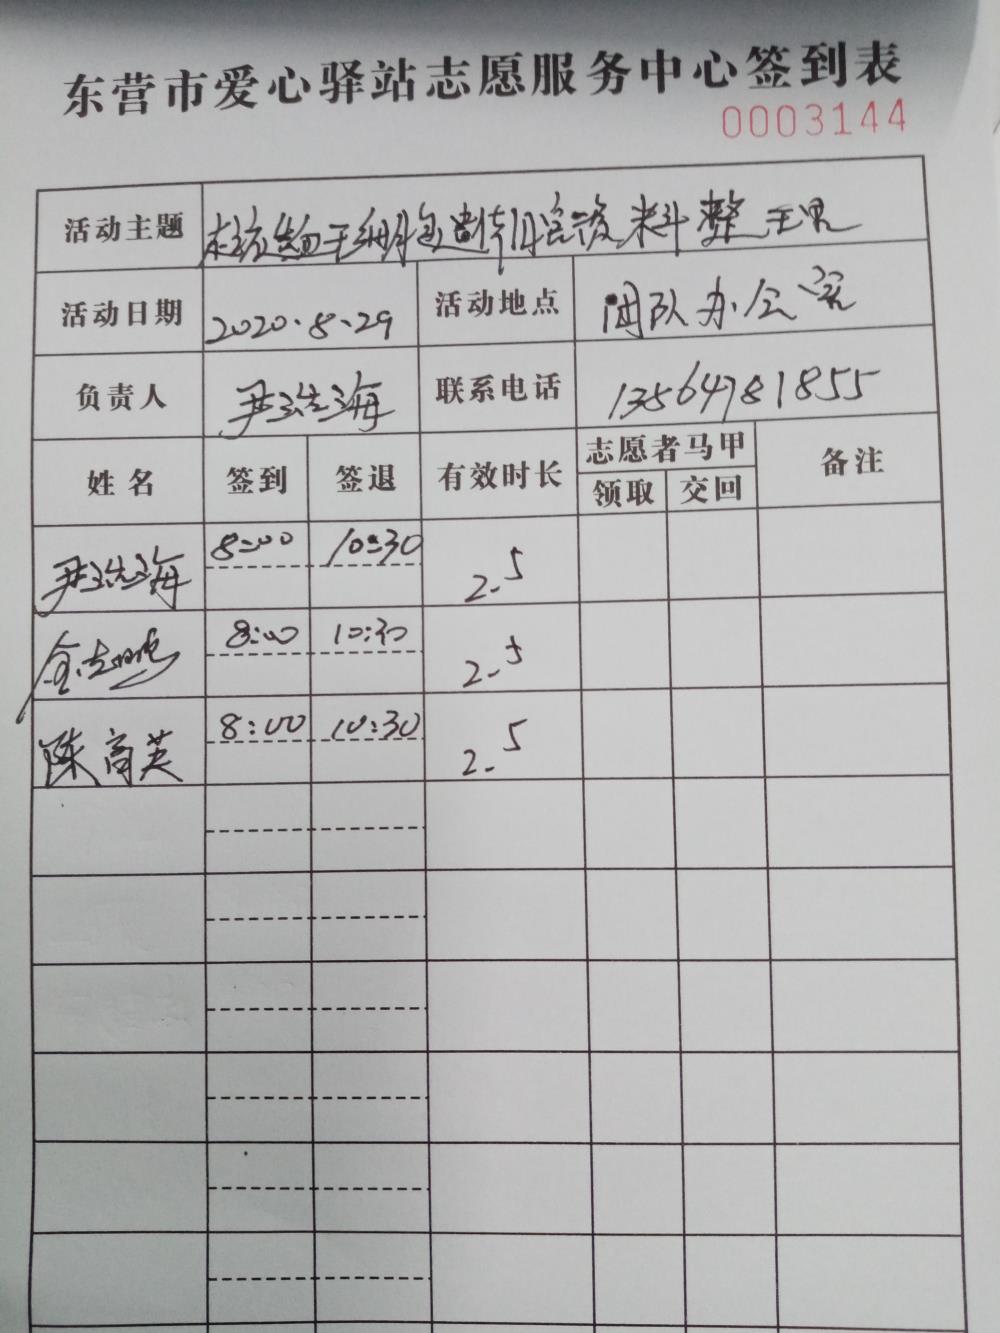 东营市爱心驿站志愿服务中心签到表
0003144
活动主题 料整理
活动日期 2020.8.29 活动地点 团队办公室
负责人 尹浩海 联系电话 13564781855
姓名 签到 签退 有效时长 志愿者马甲 领取 交回 备注
尹浩海 8:00 10:30 2.5
8:00 10:30 2.5
陈高英 8:00 10:30 2.5